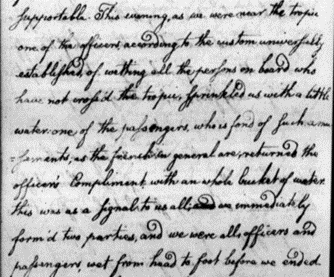 supportable. This evening, as we were near the tropic
one of the officers, according to the custom universally
established, of wetting all the persons on board who
have not cross'd the tropic, sprinkled us with a little
water: one, of the passengers, who is fond of such amu
=sements, as the french in general are, returned the
officer's Compliment with an whole bucket of water
this was as a signal to us all, and we immediately
form'd two parties, and we were all officers and
passengers, wet from head to foot before we ended